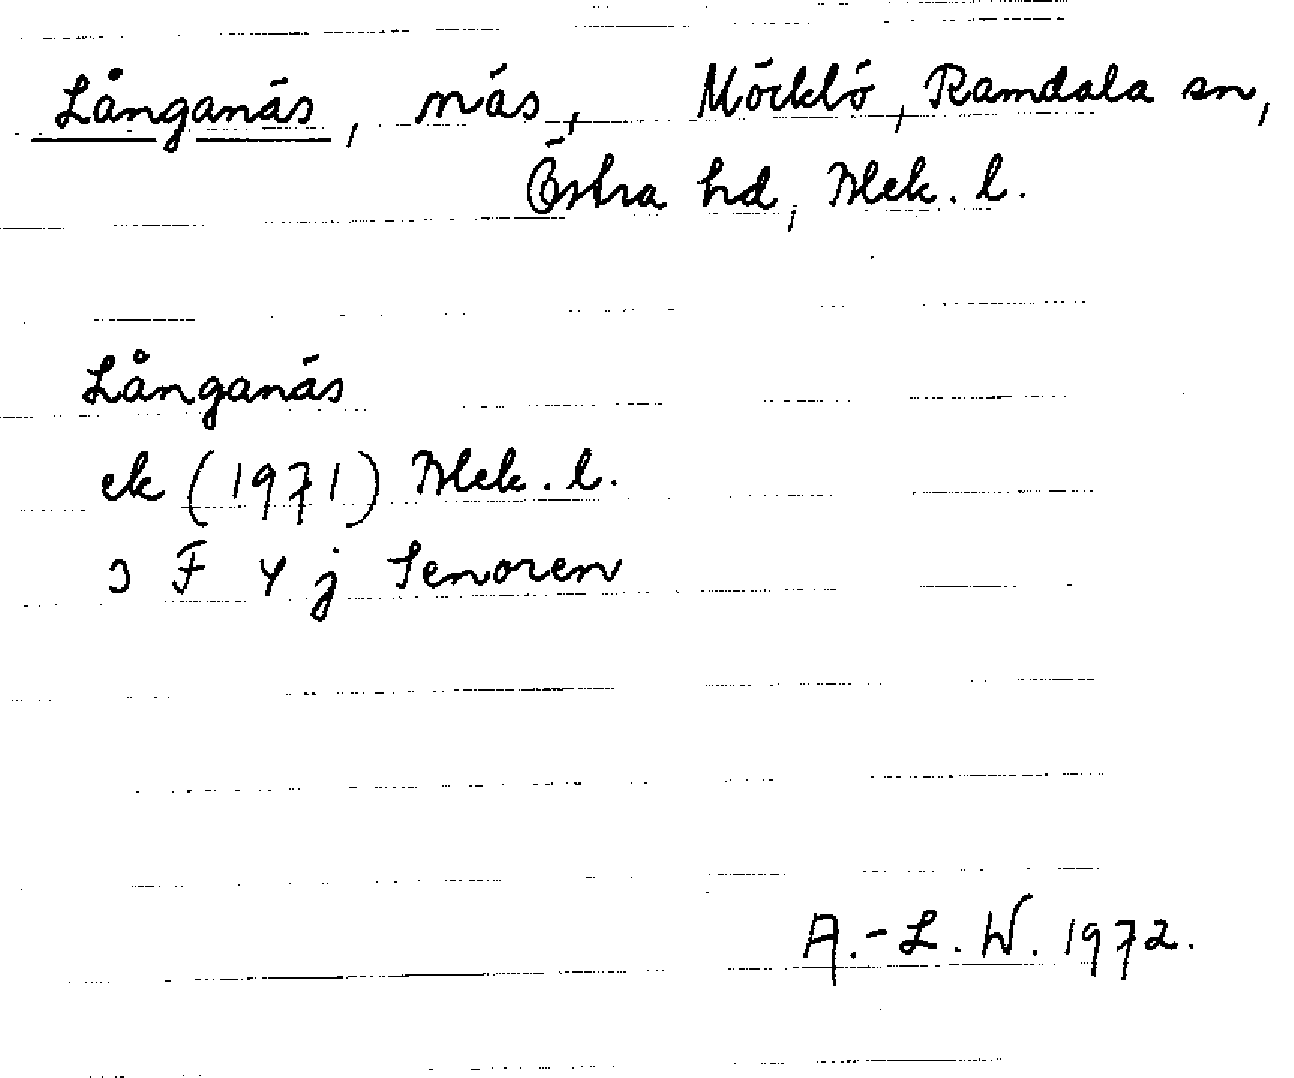 Långanäs, näs, Möcklö, Ramdala sn,
Östra hd, Blek. l.
Långanäs
ek (1971) Blek. l.
3 F 4 j Senoren
A.-L. W. 1972.